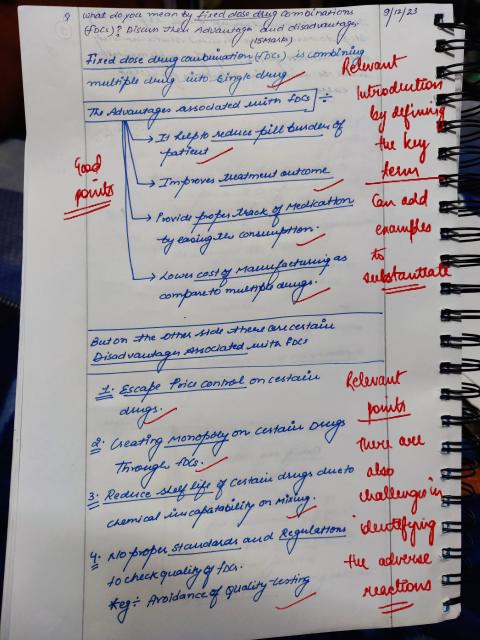 Q What do you mean by fixed dose drug combinations 9/12/23
(FDCs)? Discuss their Advantages and disadvantages
(15 Marks)
Fixed dose drug combination (FDCs) is combining
multiple drug into single drug
Relevant
Introduction
by defining
the key
term
The Advantages associated with FDCs :-
→ It help to reduce pill burden of
patient
→ Improves treatment outcome
→ Provide proper track of Medication
by easing the consumption.
→ Lower cost of Manufacturing as
compare to multiple drugs.
Good
points
Can add
examples
to
substantiate
But on the other side there are certain
Disadvantages Associated with FDCs
1. Escape Price control on certain
drugs.
2. Creating monopoly on certain Drugs
Through FDCs.
3. Reduce shelf life of certain drugs due to
chemical incapatability on Mixing.
4. No proper standards and Regulations
to check quality of FDCs.
*eg:- Avoidance of Quality testing
Relevant
points
There are
also
challenges in
identifying
the adverse
reactions